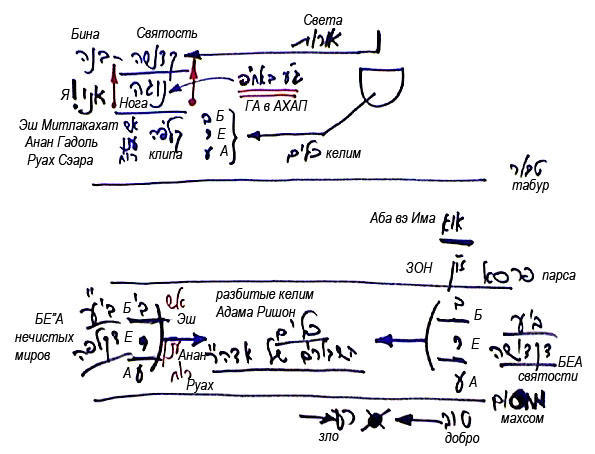 Света
Бина Святость אורות
בינה - קדושה
Я אני! נוגה ג"ע באח"פ
Нога ГА в АХАП
Эш Митлакахат אש ב Б
Анан Гадоль ענן קליפה י Е
Руах Сэара רוח клипа ע А כלים келим
טבור
табур
Аба вэ Има או"א
ЗОН זו"ן פרסא парса
разбитые келим
Адама Ришон
БЕ"А
нечистых
миров
בי"ע
דקליפה
Б ב אש Эш
Е י ענן Анан
А ע רוח Руах
כלים
השבורים של אדה"ר
ב Б
י Е
ע А
בי"ע
דקדושה БЕА
святости
מחסום
махсом
רע טוב
зло добро